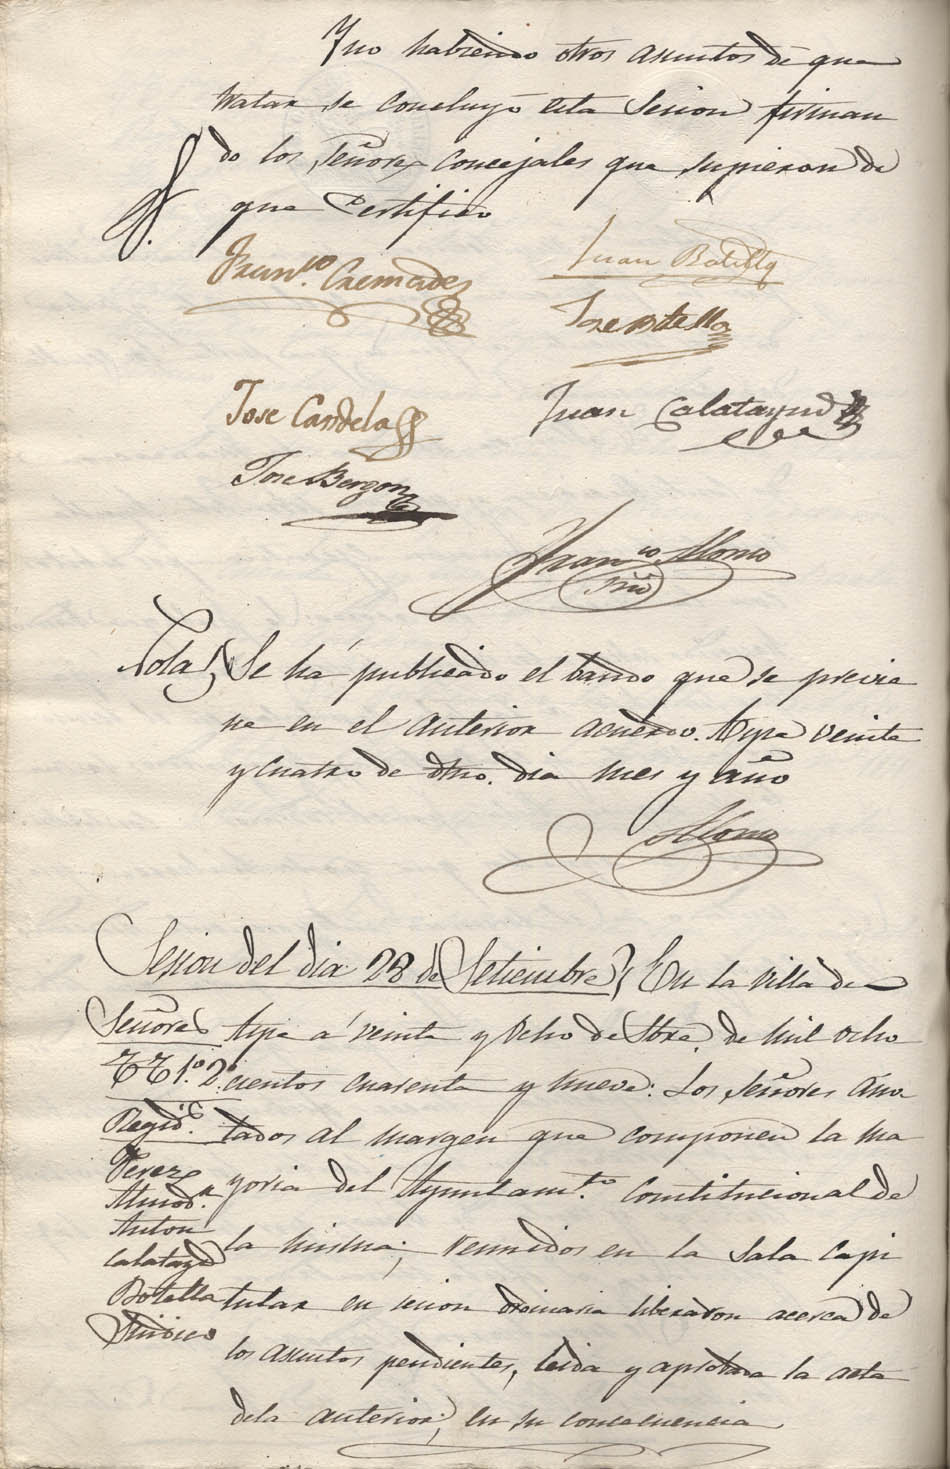 Y no habiendo otros asuntos de que
tratar se concluyó esta Sesion firman
do los Señores Concejales que supieron de
que Certifico
Franco. Cremades
Juan Botella
Jose Botella
Jose Candela
Juan Calatayud
Jose Bergon
Franco. Alonso
Srio
Nota Se há publicado el bando que se previe
ne en el anterior acuerdo. Aspe veinte
y cuatro de dho. dia mes y año
Alonso
Sesion del dia 28 de Setiembre En la villa de
Señores
Aspe a veinte y ocho de Stbre. de mil ocho
TT 1.º 2.º
cientos cuarenta y nueve: Los Señores ano
Regid.s
tados al margen que componen la ma
Perez
yoria del Ayuntamt.º Constitucional de
Almod.r
Anton
la misma; reunidos en la Sala Capi
Calatayd
Botella
tular en sesion ordinaria liberaron acerca de
Sindico
los asuntos pendientes, leida y aprobada la acta
dela anterior; en su consecuencia